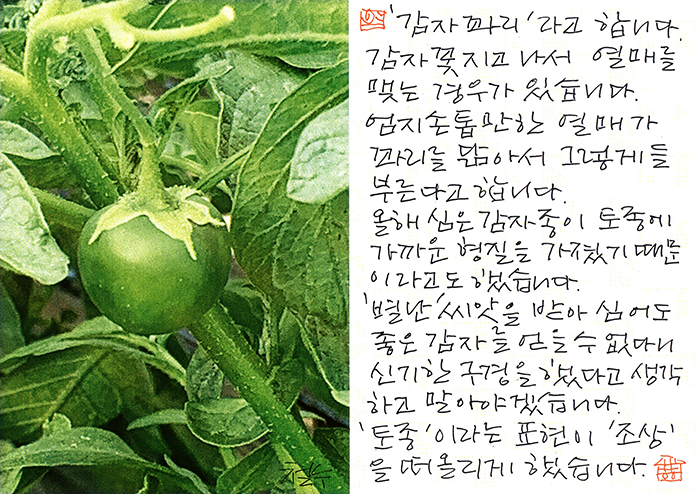 '감자꽈리'라고 합니다.
감자꽃 지고 나서 열매를
맺는 경우가 있습니다.
엄지손톱만한 열매가
꽈리를 닮아서 그렇게들
부른다고 합니다.
올해 심은 감자종이 토종에
가까운 형질을 가졌기 때문
이라고도 했습니다.
'별난' 씨앗을 받아 심어도
좋은 감자를 얻을 수 없다니
신기한 구경을 했다고 생각
하고 말아야겠습니다.
'토종'이라는 표현이 '조상'
을 떠올리게 했습니다.